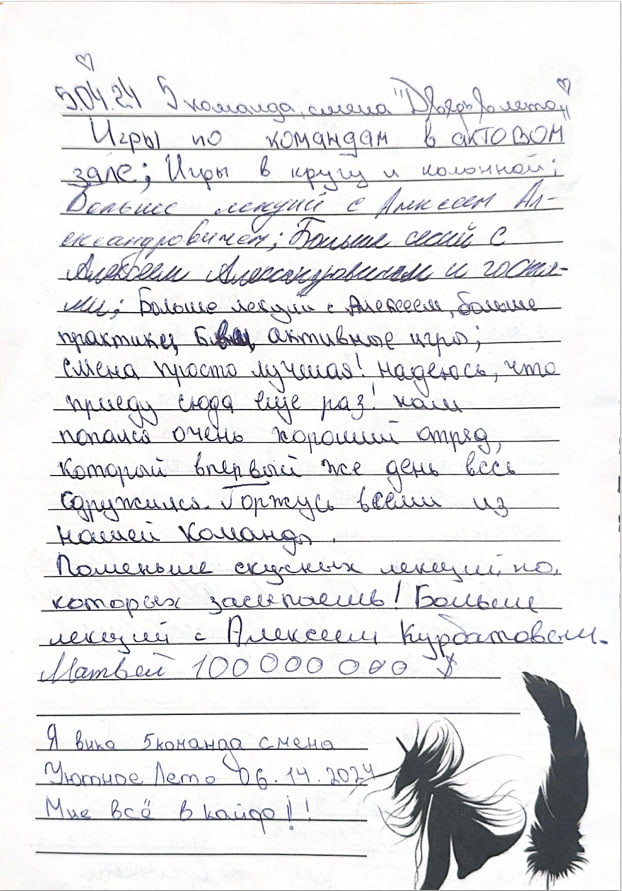 5.04.24 5 команда, смена "Дворы лета"
Игры по командам в актовом
зале; Игры в кругу и колонной;
Больше лекций с Алексеем Ал-
ександровичем; Больше сессий с
Алексеем Александровичем и гостя-
ми; Больше лекций с Алексеем, больше
практики, активные игры;
смена просто лучшая! надеюсь, что
приеду сюда еще раз! нам
попался очень хороший отряд,
который впервый же день весь
сдружился. Горжусь всеми из
нашей команды.
Поменьше скусных лекций, по
которых засыпаешь! Больше
лекций с Алексеем Курбатовским.
Матвей 100000000 $
Я вика 5 команда смена
Уютное Лето 06.14.2024
Мне всё в кайф!!